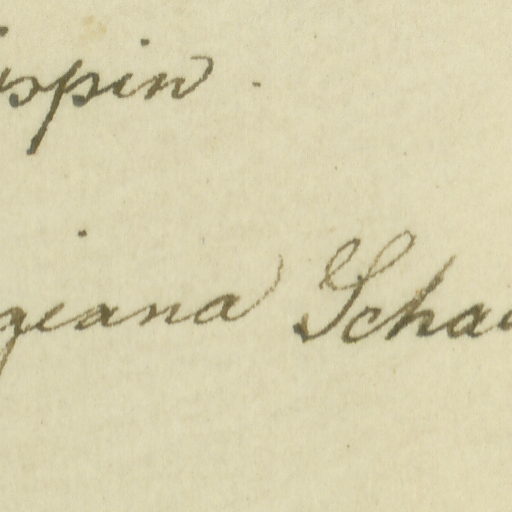 ispin.
geana Scha